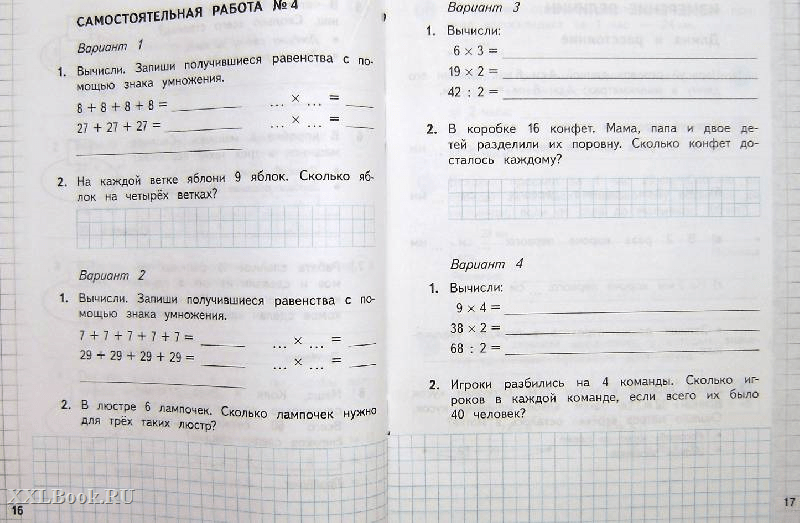 САМОСТОЯТЕЛЬНАЯ РАБОТА № 4
Вариант 1
1. Вычисли. Запиши получившиеся равенства с по-
мощью знака умножения.
8 + 8 + 8 + 8 = ________ ... × ... = ____
27 + 27 + 27 = ________ ... × ... = ____
2. На каждой ветке яблони 9 яблок. Сколько яб-
лок на четырёх ветках?
Вариант 2
1. Вычисли. Запиши получившиеся равенства с по-
мощью знака умножения.
7 + 7 + 7 + 7 + 7 = ________ ... × ... = ____
29 + 29 + 29 + 29 = ________ ... × ... = ____
2. В люстре 6 лампочек. Сколько лампочек нужно
для трёх таких люстр?
XXLBook.RU
16
Вариант 3
1. Вычисли:
6 × 3 = ________
19 × 2 = ________
42 : 2 = ________
2. В коробке 16 конфет. Мама, папа и двое де-
тей разделили их поровну. Сколько конфет до-
сталось каждому?
Вариант 4
1. Вычисли:
9 × 4 = ________
38 × 2 = ________
68 : 2 = ________
2. Игроки разбились на 4 команды. Сколько иг-
роков в каждой команде, если всего их было
40 человек?
17